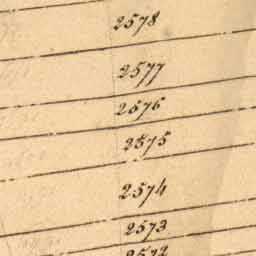 2578
2577
2576
2575
2574
2573
2572